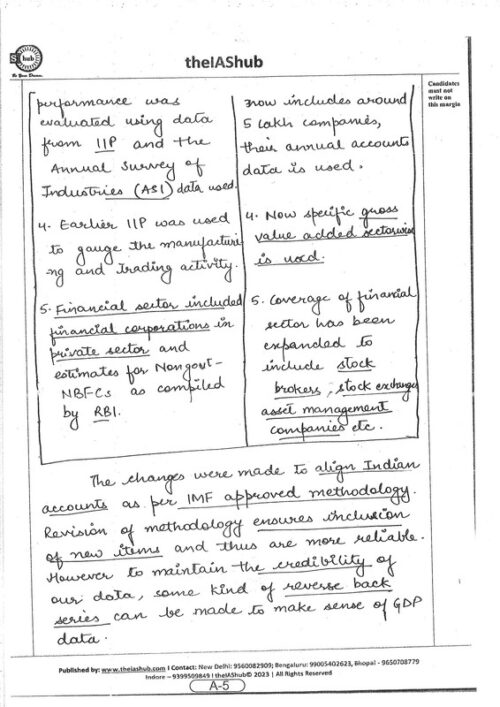 hub
Be Your Dream.
theIAShub
Candidates
must not
write on
this margin
performance was
evaluated using data
from IIP and the
Annual Survey of
Industries (ASI) data used.
4. Earlier IIP was used
to gauge the manufacturi
ng and trading activity.
5. Financial sector included
financial corporations in
private sector and
estimates for Nongovt-
NBFCs as compiled
by RBI.
now includes around
5 lakh companies,
their annual accounts
data is used.
4. Now specific gross
value added sectorwise
is used.
5. Coverage of financial
sector has been
expanded to
include stock
brokers, stock exchanges
asset management
companies etc.
The changes were made to align Indian
accounts as per IMF approved methodology.
Revision of methodology ensures inclusion
of new items and thus are more reliable.
However to maintain the credibility of
our data, some kind of reverse back
series can be made to make sense of GDP
data.
Published by: www.theiashub.com I Contact: New Delhi: 9560082909; Bengaluru: 99005402623, Bhopal - 9650708779
Indore – 9399509849 I theIAShub© 2023 | All Rights Reserved
A-5